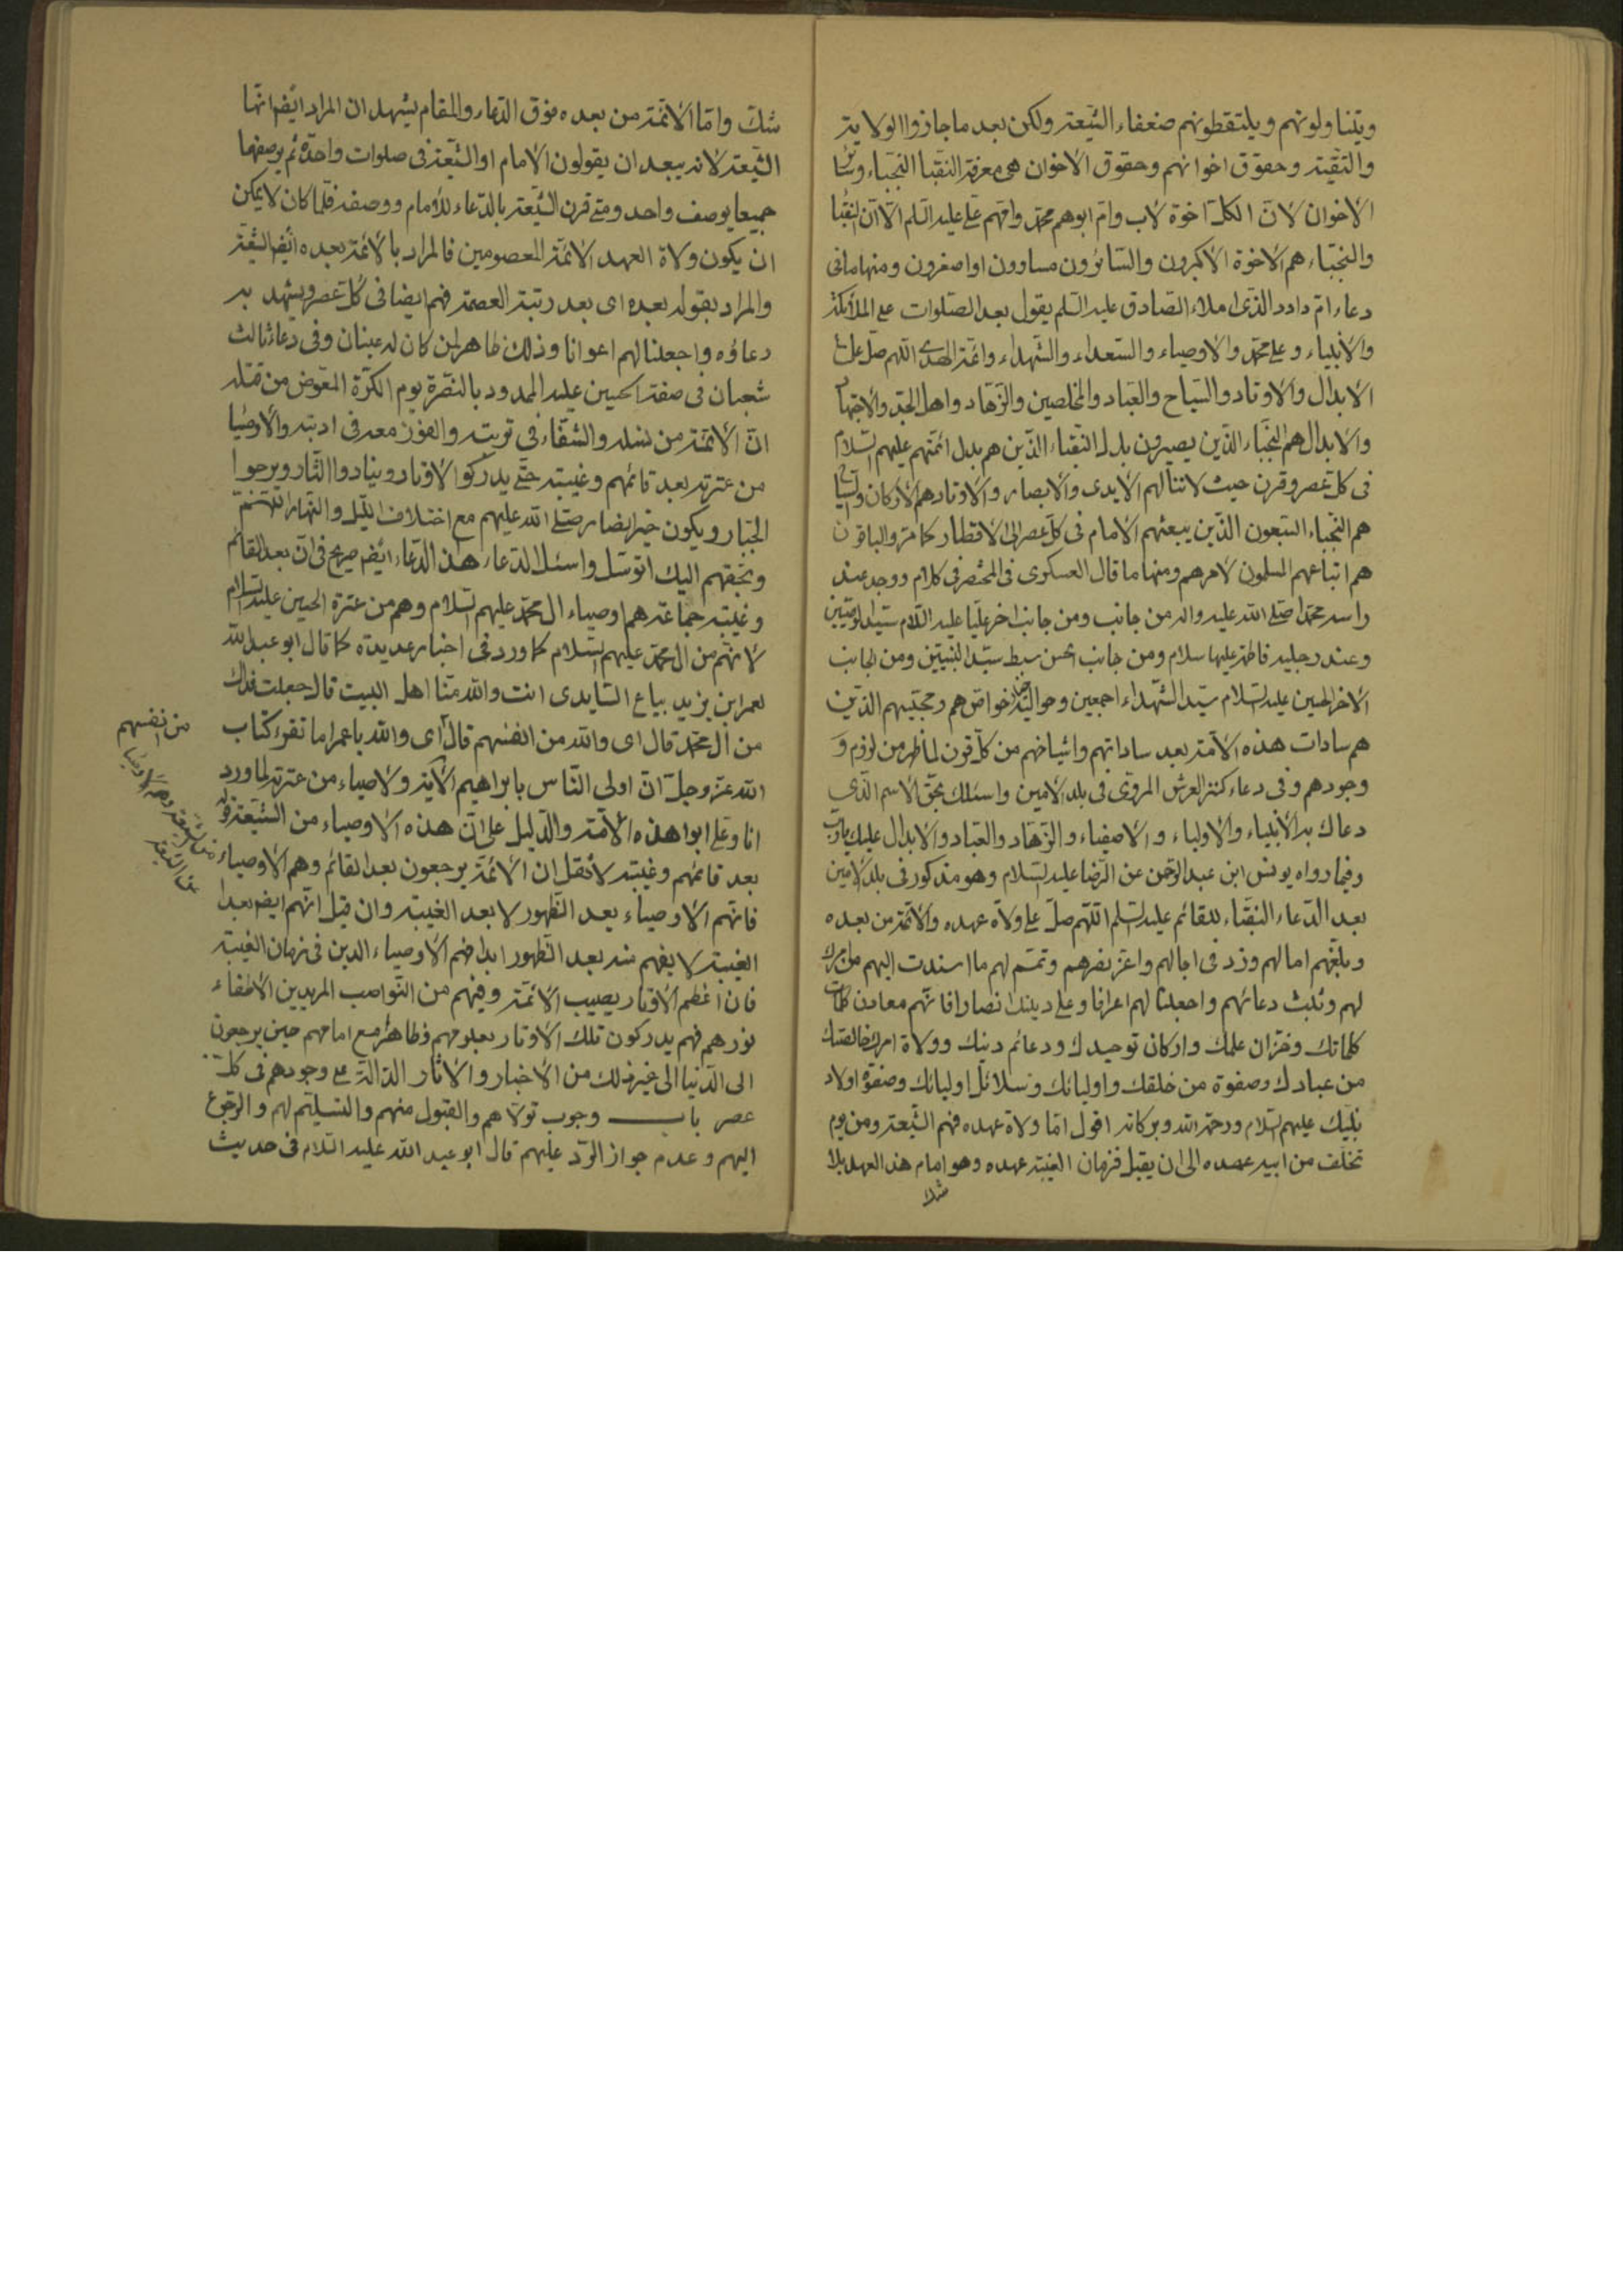 ويتناولونهم ويلتقطونهم ضعفاء الشيعة ولكن بعد ما جازوا الولاية
والتقية وحقوق اخوانهم وحقوق الاخوان هي معرفة النقبا النجباء وسا
الاخوان لان الكل اخوة لاب وام ابوهم محمد وامهم علي عليه السلم الا ان النقبا
والنجباء هم الاخوة الاكبرون والسائرون مساوون او اصغرون ومنها ما في
دعاء ام داود الذي املاء الصادق عليه السلم يقول بعد الصلوات على الملائكة
والانبياء وعلى محمد والاوصياء والسعداء والشهداء وائمة الهدى اللهم صل على
الابدال والاوتاد والسياح والعباد والمخلصين والزهاد واهل الجد والاجتهاد
والابدال هم النجباء الذين يصيرون بدل النقباء الذين هم بدل ائمتهم عليهم السلام
في كل عصر وقرن حيث لا تنالهم الايدي والابصار والاوتاد هم الاركان والسياح
هم النجباء السبعون الذين يبعثهم الامام في كل عصر الى الاقطار كما مر والباقون
هم اتباعهم المسلمون لامرهم ومنها ما قال العسكري في المحتضر في كلام ووجد عند
راسه محمدا صلى الله عليه واله من جانب ومن جانب اخر عليا عليه السلام سيد الوصيين
وعند رجليه فاطمة عليها سلام ومن جانب الحسن سبط سيد النبيين ومن الجانب
الاخر الحسين عليه السلام سيد الشهداء اجمعين وحواليه خيار خواصهم ومحبيهم الذين
هم سادات هذه الامة بعد ساداتهم واشياخهم من كل قرن لما ظهر من لزوم و
وجودهم وفي دعاء كنز العرش المروي في بلد الامين واسئلك بحق الاسم الذي
دعاك به الانبياء والاولياء والاصفياء والزهاد والعباد والابدال عليك يا رب
وفيما رواه يونس ابن عبد الرحمن عن الرضا عليه السلام وهو مذكور في بلد الامين
بعد الدعاء النقباء للقائم عليه السلم اللهم صل على ولاة عهده والائمة من بعده
وبلغهم امالهم وزد في اجالهم واعز نصرهم وتمم لهم ما اسندت اليهم من امرك
لهم وثبت دعائهم واجعلنا لهم اعوانا وعلى دينك انصارا فانهم معادن كلماتك
كلماتك وخزان علمك واركان توحيدك ودعائم دينك وولاة امرك خالصتك
من عبادك وصفوة من خلقك واوليائك وسلائل اوليائك وصفوة اولاد
نبيك عليهم السلام ورحمة الله وبركاته اقول اما ولاة عهده فهم الشيعة ومن يوم
تخلف من ابيه عهده الى ان يقبل فزمان الغيبة عهده وهو امام هذا العهد بلا
شك
شك واما الائمة من بعده فوق الدعاء والمقام يشهد ان المراد ايضا انها
الشيعة لانه يبعد ان يقولون الامام او الشيعة في صلوات واحدة ثم يوصفها
جميعا بوصف واحد ومتى قرن الشيعة بالدعاء للامام ووصفه فلما كان لا يمكن
ان يكون ولاة العهد الائمة المعصومين فالمراد بالائمة بعده ايضا الشيعة
والمراد بقوله بعده اى بعد رتبة العصمة فهم ايضا في كل عصر ويشهد به
دعاؤه واجعلنا لهم اعوانا وذلك ظاهر لمن كان له عينان وفي دعاء ثالث
شعبان في صفة الحسين عليه الممدود بالنصرة يوم الكرة المعوض من قتله
ان الائمة من نسله والشفاء في تربته والفوز معه في اوبته والاوصيا
من عترته بعد قائمهم وغيبته حتى يدركوا الاوتار ويثاروا الثار ويرضوا
الجبار ويكون خير انصار صلى الله عليهم مع اختلاف الليل والنهار اللهم
وبحقهم اليك اتوسل واسئل الدعاء هذا الدعاء ايضا صريح في ان بعد القائم
وغيبته جماعة هم اوصياء ال محمد عليهم السلام وهم من عترة الحسين عليه السلام
لانهم من ال محمد عليهم السلام كما ورد في اخبار عديدة كما قال ابو عبد الله
لعمر ابن يزيد بياع السابري انت والله منا اهل البيت قال جعلت فداك
من ال محمد قال اى والله من انفسهم قال اى والله يا عمر اما تقرء كتاب
الله عز وجل ان اولى الناس بابراهيم الاية ولاصياء من عترته لما ورد
انا وعلي ابوا هذه الامة والدليل على ان هذه الاوصياء من الشيعة قوله
بعد قائمهم وغيبته لا نقل ان الائمة يرجعون بعد القائم وهم الاوصياء
فانهم الاوصياء بعد الظهور لا بعد الغيبة وان قيل انهم ايضا بعد
الغيبة لا يفهم منه بعد الظهور ابدا فهم الاوصياء الذين في زمان الغيبة
فان اعظم الاوتار يصيب الائمة وفيهم من النواصب المريدين الاطفاء
نورهم فهم يدركون تلك الاوتار بعلومهم وظاهرا مع امامهم حين يرجعون
الى الدنيا الى غير ذلك من الاخبار والاثار الدالة على وجودهم في كل
عصر باب وجوب تولاهم والقبول منهم والتسليم لهم والرجوع
اليهم وعدم جواز الرد عليهم قال ابو عبد الله عليه السلام في حديث
من انفسهم